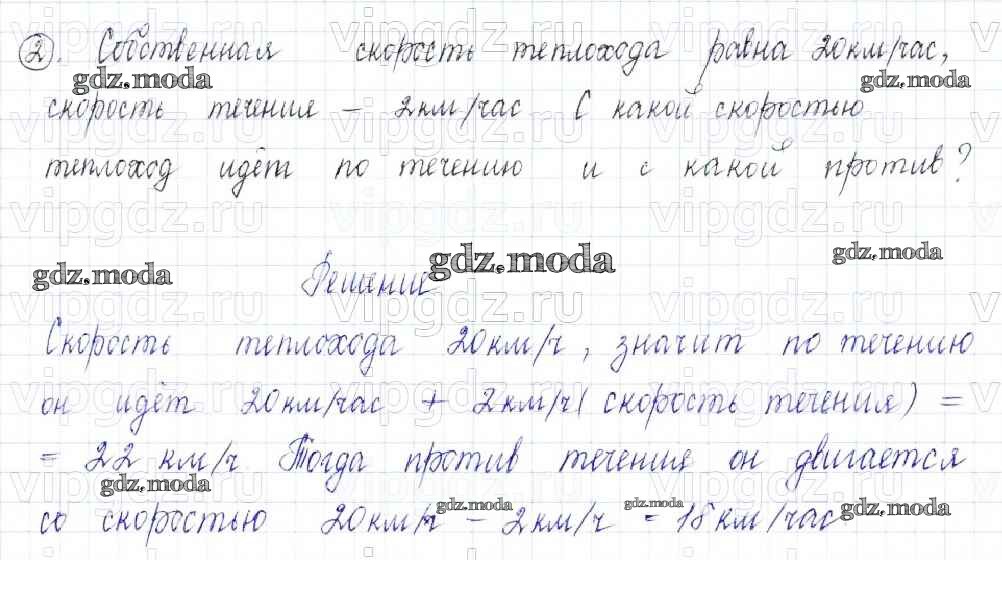 2). Собственная скорость теплохода равна 20км/час,
скорость течения – 2км/час С какой скоростью
теплоход идёт по течению и с какой против?
Решение
Скорость теплохода 20км/ч, значит по течению
он идёт 20км/час + 2км/ч( скорость течения) =
= 22 км/ч Тогда против течения он двигается
со скоростью 20км/ч – 2км/ч = 18км/час
gdz.moda
gdz.moda
gdz.moda
gdz.moda
gdz.moda
gdz.moda
gdz.moda
gdz.moda
gdz.moda
vipgdz.ru